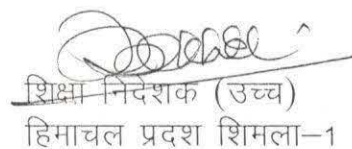 शिक्षा निदेशक (उच्च)
हिमाचल प्रदश शिमला–1